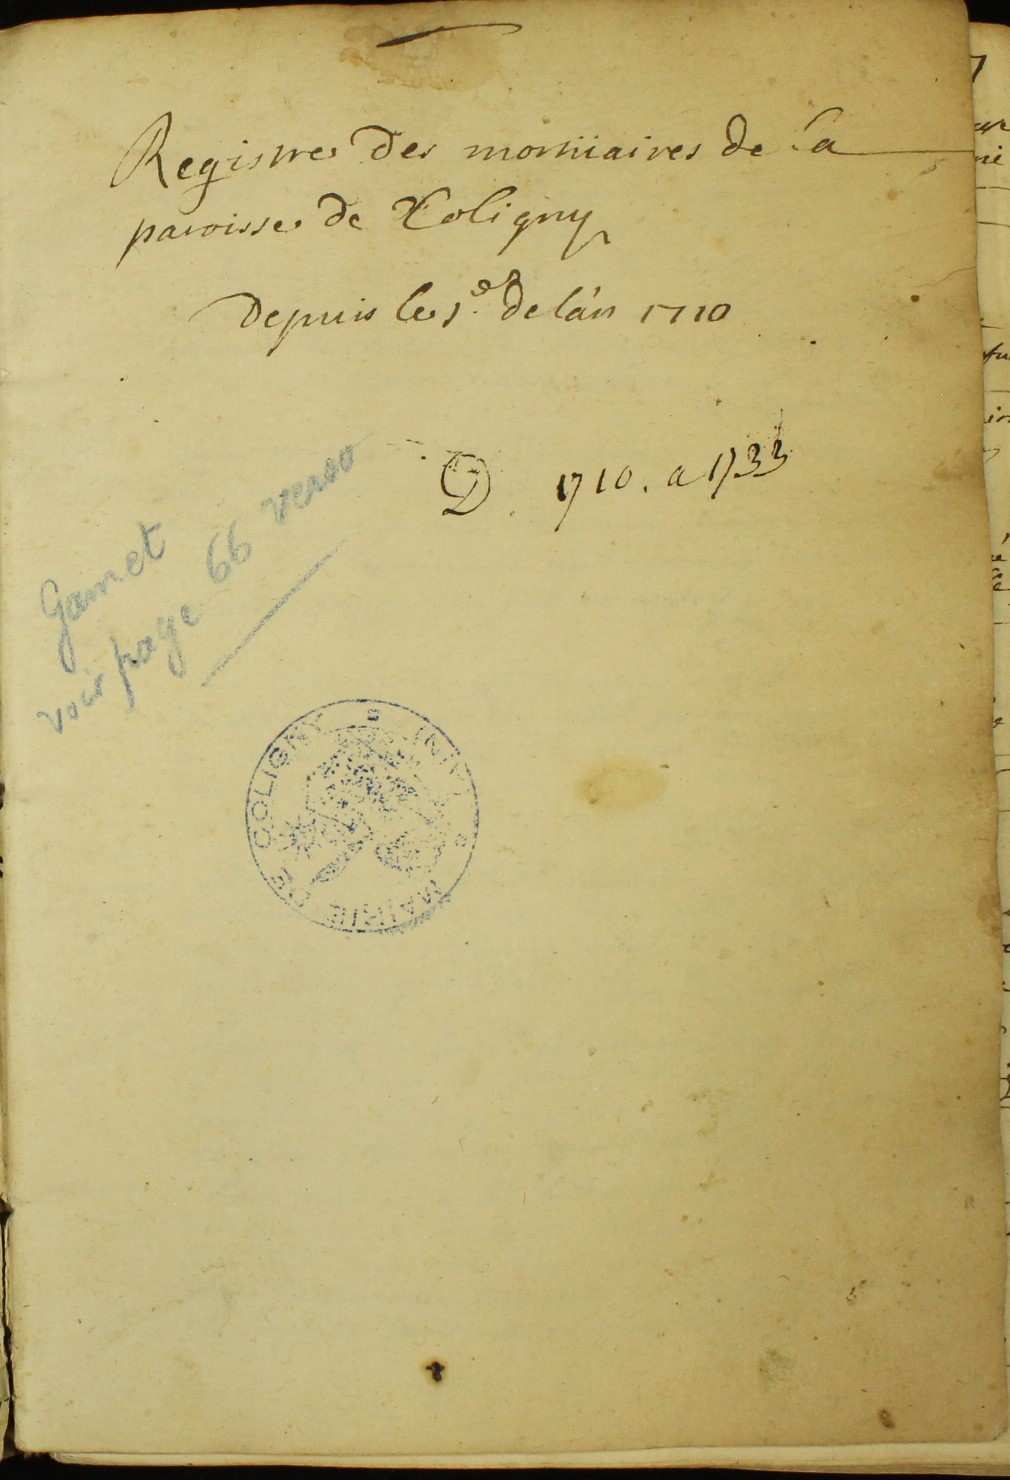 Registre des mortuaires de la
paroisse de Coligny
Depuis le 1er de l'an 1710
D. 1710. a 1733
Gamet
voir page 66 verso
MAIRIE DE COLIGNY
(AIN)